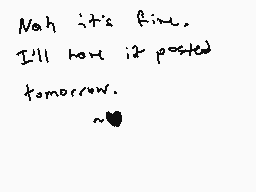 Nah it's fine.
I'll have it posted
tomorrow.
~♥